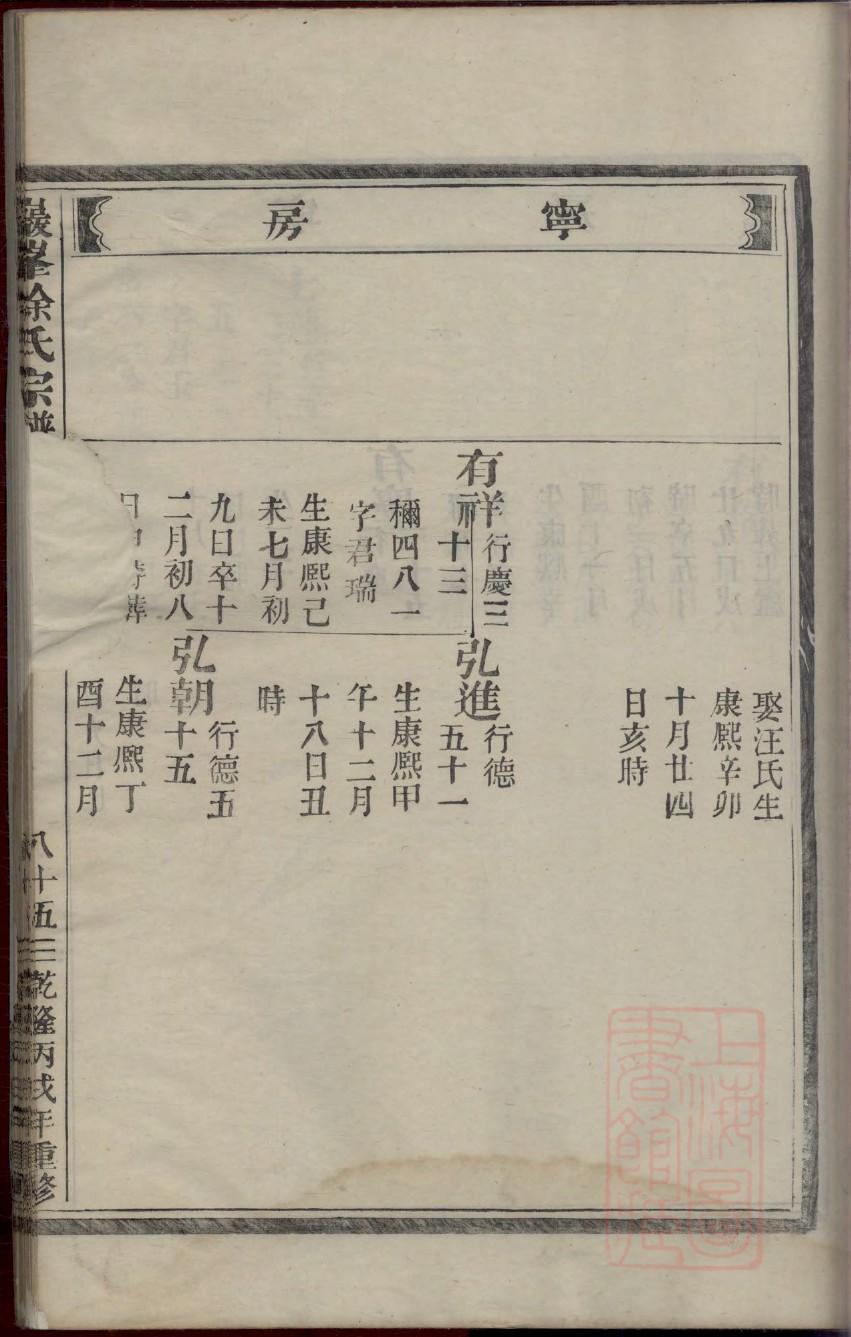 寧房
娶汪氏生
康熙辛卯
十月廿四
日亥時
有祥行慶三
十三
稱四八一
字君瑞
生康熙己
未七月初
九日卒十
二月初八
日申時葬
弘進行德
五十一
生康熙甲
午十二月
十八日丑
時
弘朝行德五
十五
生康熙丁
酉十二月
巖峯徐氏宗譜
八十五
乾隆丙戌年重修
上海圖書館藏